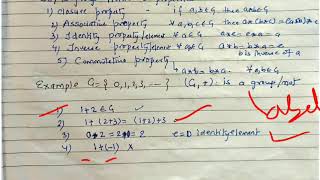 1) closure property - if a,b∈G then a*b∈G
2) Associative property ∀ a,b,c∈G then a*(b*c)=(a*b)*c
3) Identity property/element ∀ a∈G a*e=e*a=a
4) Inverse property ∀ a∈G a*b=b*a=e
b is inverse of a
5) Commutative property
a*b=b*a. ∀ a,b∈G
Example G={0,1,2,3,...} (G,+) is a group/not
1) 1+2∈G
2) 1+(2+3)=(1+2)+3
3) 0+2=2+0=2 e=0 identity element
4) 1+(-1) X